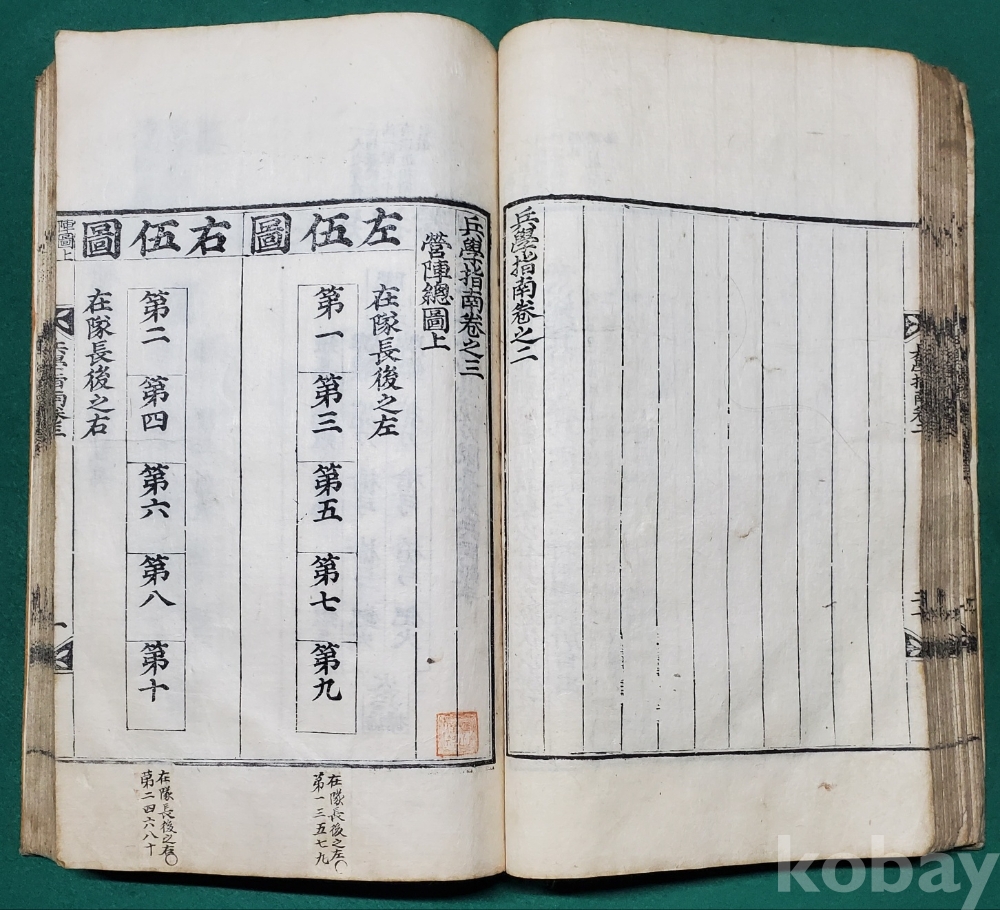 兵學指南卷之二
兵學指南卷之三
營陣總圖上
左伍圖
在隊長後之左
第一
第三
第五
第七
第九
右伍圖
第二
第四
第六
第八
第十
在隊長後之右
陣圖上
一
在隊長後之左○
第一三五七九
在隊長後之右○
第二四六八十
kobay